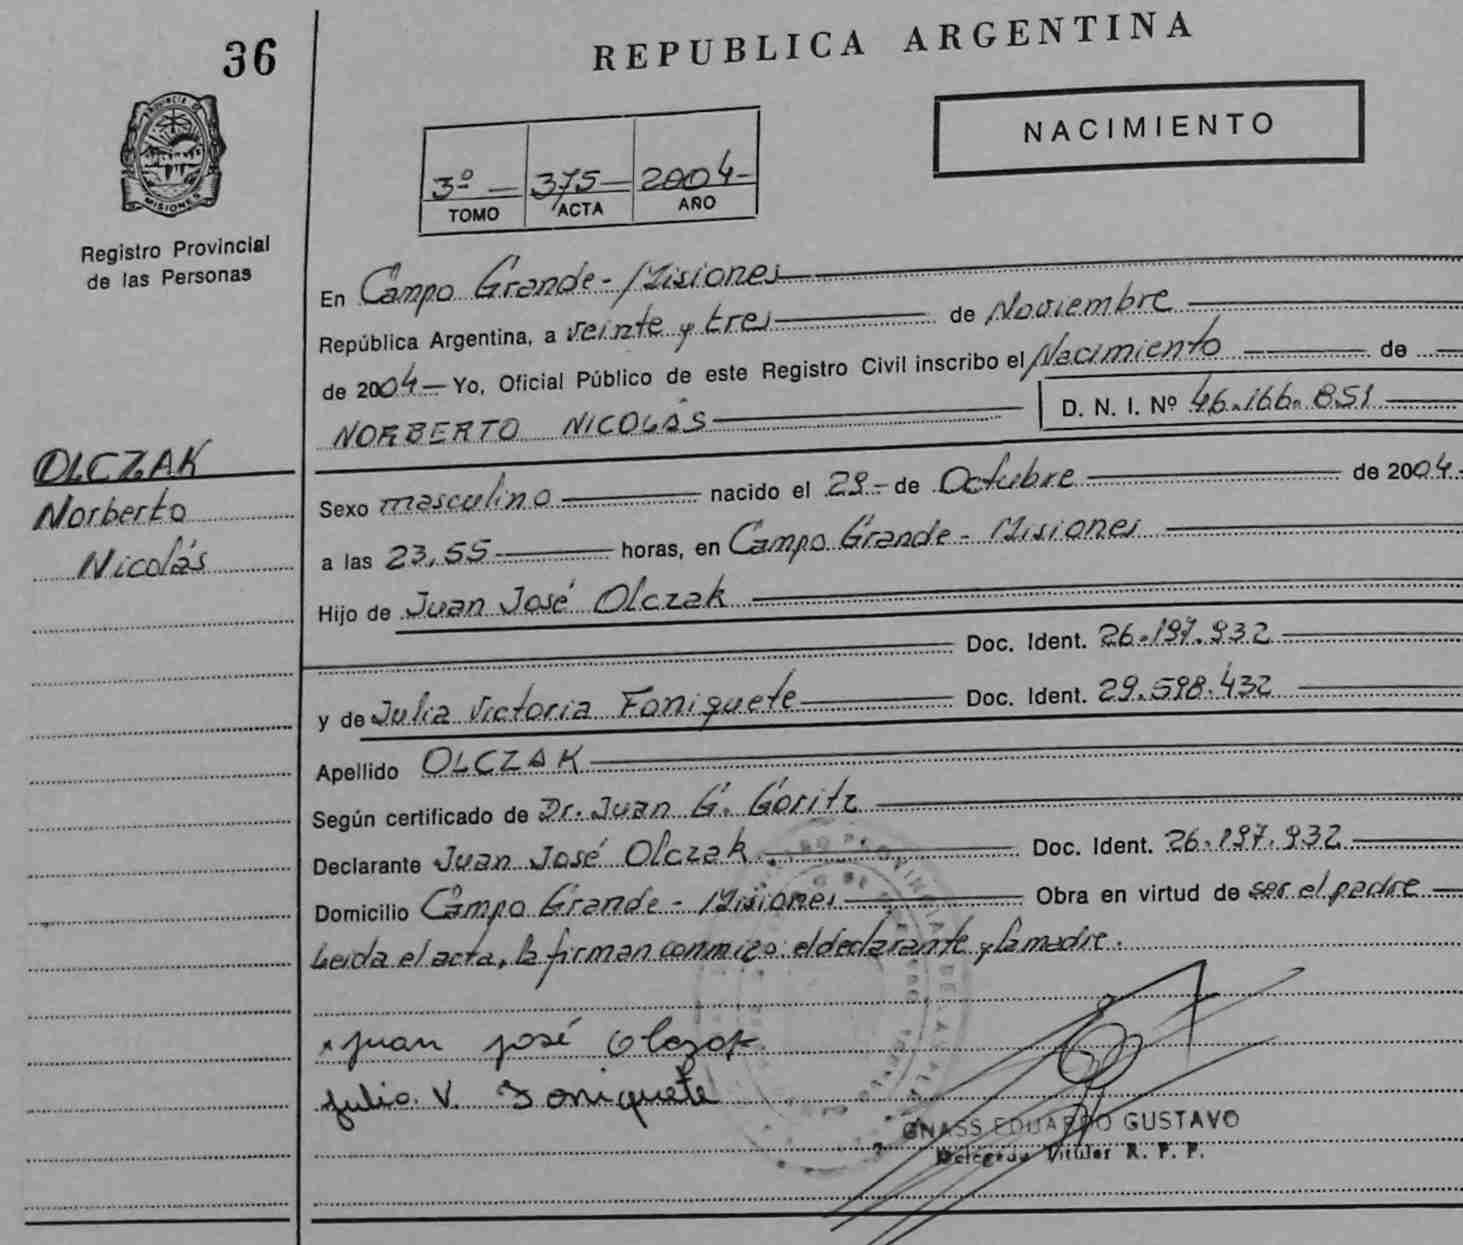 36
REPUBLICA ARGENTINA
NACIMIENTO
PROVINCIA DE
MISIONES
3º 375 2004
TOMO ACTA AÑO
Registro Provincial
de las Personas
En Campo Grande - Misiones
República Argentina, a veinte y tres de Noviembre
de 2004 Yo, Oficial Público de este Registro Civil inscribo el Nacimiento de
NORBERTO NICOLÁS D. N. I. Nº 46.166.851
OLCZAK
Norberto
Nicolás
Sexo masculino nacido el 29 de Octubre de 2004
a las 23,55 horas, en Campo Grande - Misiones
Hijo de Juan José Olczak
Doc. Ident. 26.197.932
y de Julia Victoria Foniquete Doc. Ident. 29.598.432
Apellido OLCZAK
Según certificado de Dr. Juan G. Goritz
Declarante Juan José Olczak Doc. Ident. 26.197.932
Domicilio Campo Grande - Misiones Obra en virtud de ser el padre
Leída el acta, la firman conmigo: el declarante y la madre.
Juan José Olczak
Julia V. Foniquete
GNASS EDUARDO GUSTAVO
Delegado Titular R. P. P.